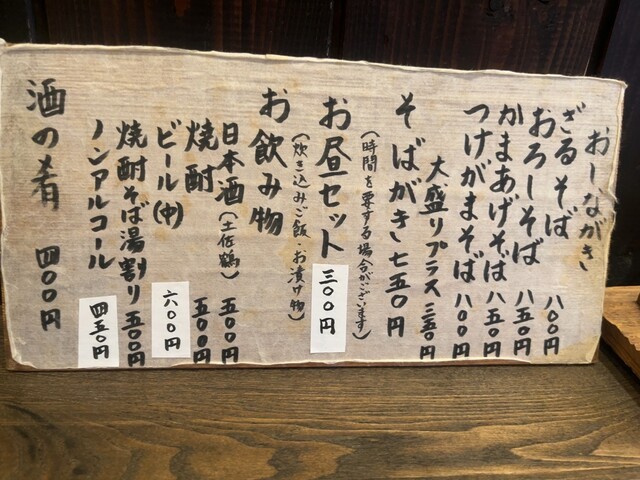 おしながき
ざるそば 八〇〇円
おろしそば 八五〇円
かまあげそば 八五〇円
つけがまそば 八〇〇円
大盛りプラス 三五〇円
そばがき 七五〇円
(時間を要する場合がございます)
お昼セット 三〇〇円
(炊き込みご飯・お漬け物)
お飲み物
日本酒(土佐鶴) 五〇〇円
焼酎 五〇〇円
ビール(中) 六〇〇円
焼酎そば湯割り 五〇〇円
ノンアルコール 四五〇円
酒の肴 四〇〇円